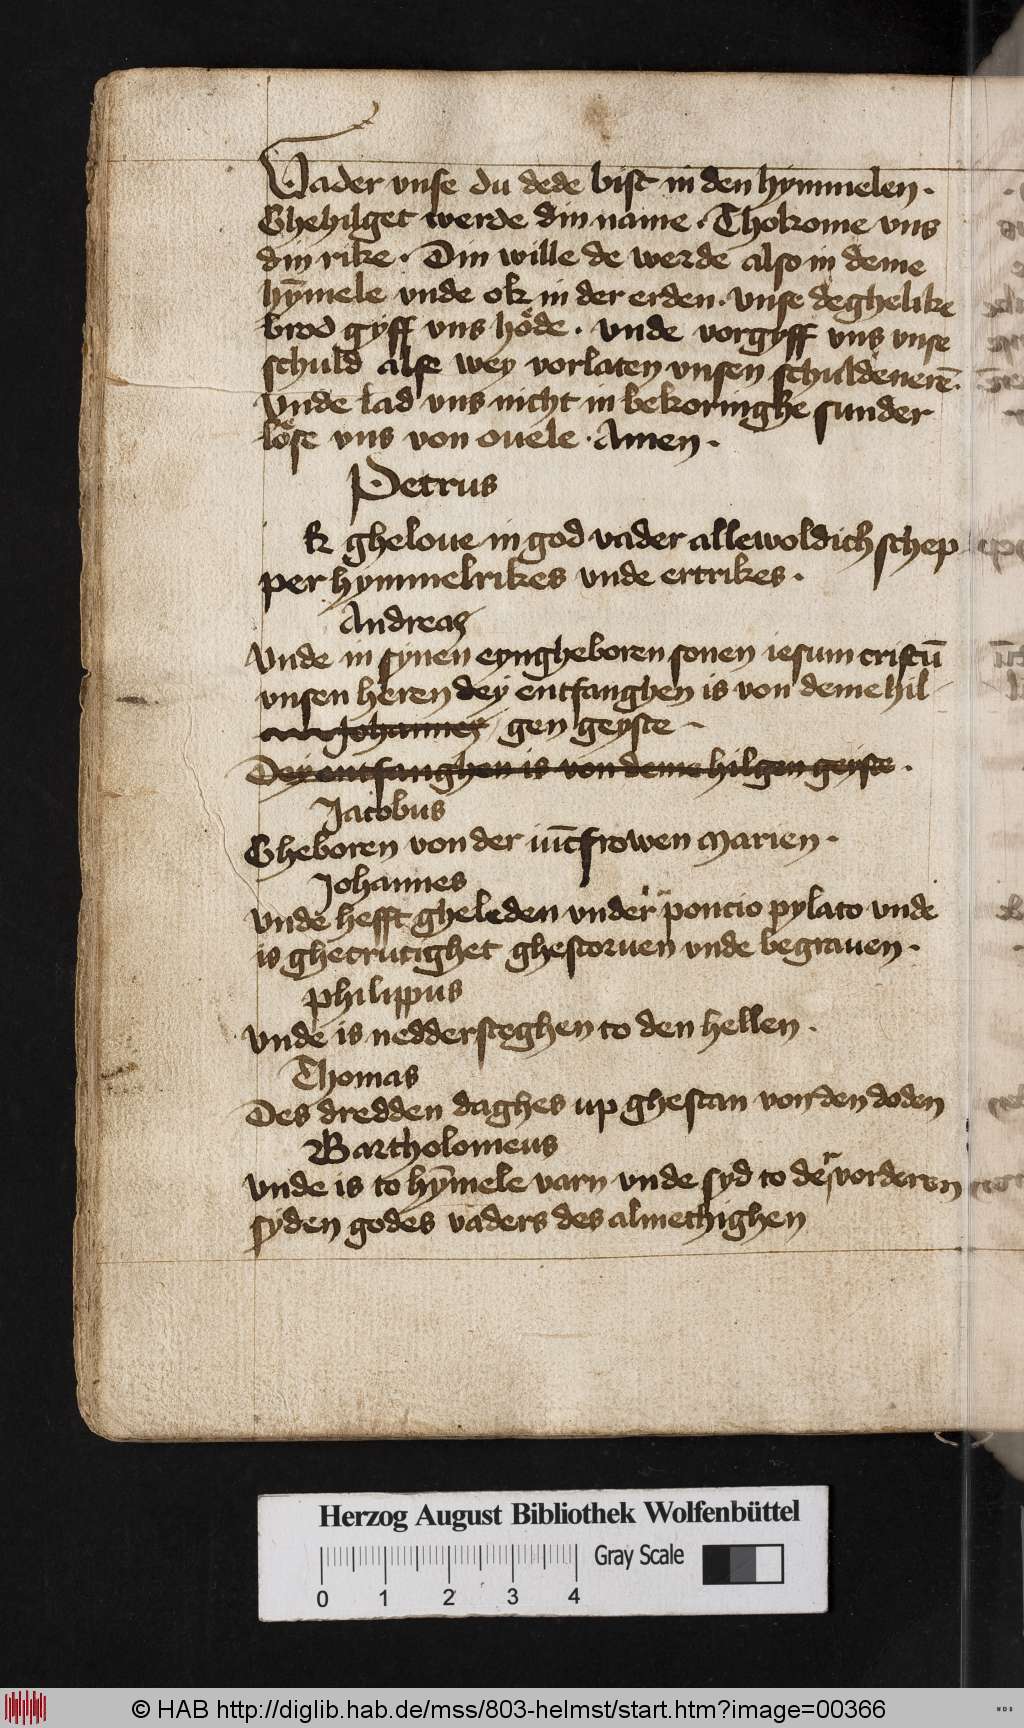 Vader vnse du dede bist in den hymmelen .
Ghehilget werde din name . Thokome vns
din rike . Din wille de werde also in deme
hym̄ele vnde ok in der erden . vnse deghelike
brod gyff vns hoͤde . vnde vorgyff vns vnse
schuld alse wey vorlaten vnsen schuldenerē .
Vnde lad vns nicht in bekoringhe sunder
loͤse vns von ouele . Amen .
Petrus
k gheloue in god vader allewoldich schep
per hymmelrikes vnde ertrikes .
Andreas
Vnde in synen eyngheboren sonen iesum cristū
vnsen heren dey entfanghen is von deme hil
Johannes gen geyste
Dey entfanghen is von deme hilgen geiste .
Jacobus
Gheboren von der iūcfrowen marien .
Johannes
vnde hefft gheleden vnder poncio pylato vnde
is ghecrutighet ghestoruen vnde begrauen .
philippus
vnde is neddersteghen to den hellen .
Thomas
Des dredden daghes up ghestan von den doden
Bartholomeus
vnde is to hym̄ele varn vnde syd to der vorderen
syden godes vaders des almechighen
Herzog August Bibliothek Wolfenbüttel
Gray Scale
0 1 2 3 4
© HAB http://diglib.hab.de/mss/803-helmst/start.htm?image=00366